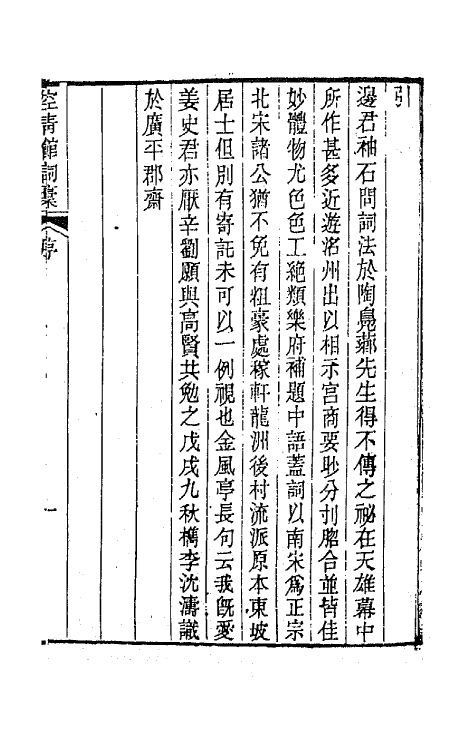 引
邊君袖石問詞法於陶鳧薌先生得不傳之祕在天雄幕中
所作甚多近遊洺州出以相示宮商要眇分刌脗合並皆佳
妙體物尤色色工絕類樂府補題中語蓋詞以南宋爲正宗
北宋諸公猶不免有粗豪處稼軒龍洲後村流派原本東坡
居士但別有寄託未可以一例視也金風亭長句云我旣愛
姜史君亦厭辛劉願與高賢共勉之戊戌九秋檇李沈濤識
於廣平郡齋
空青館詞藁
序
一